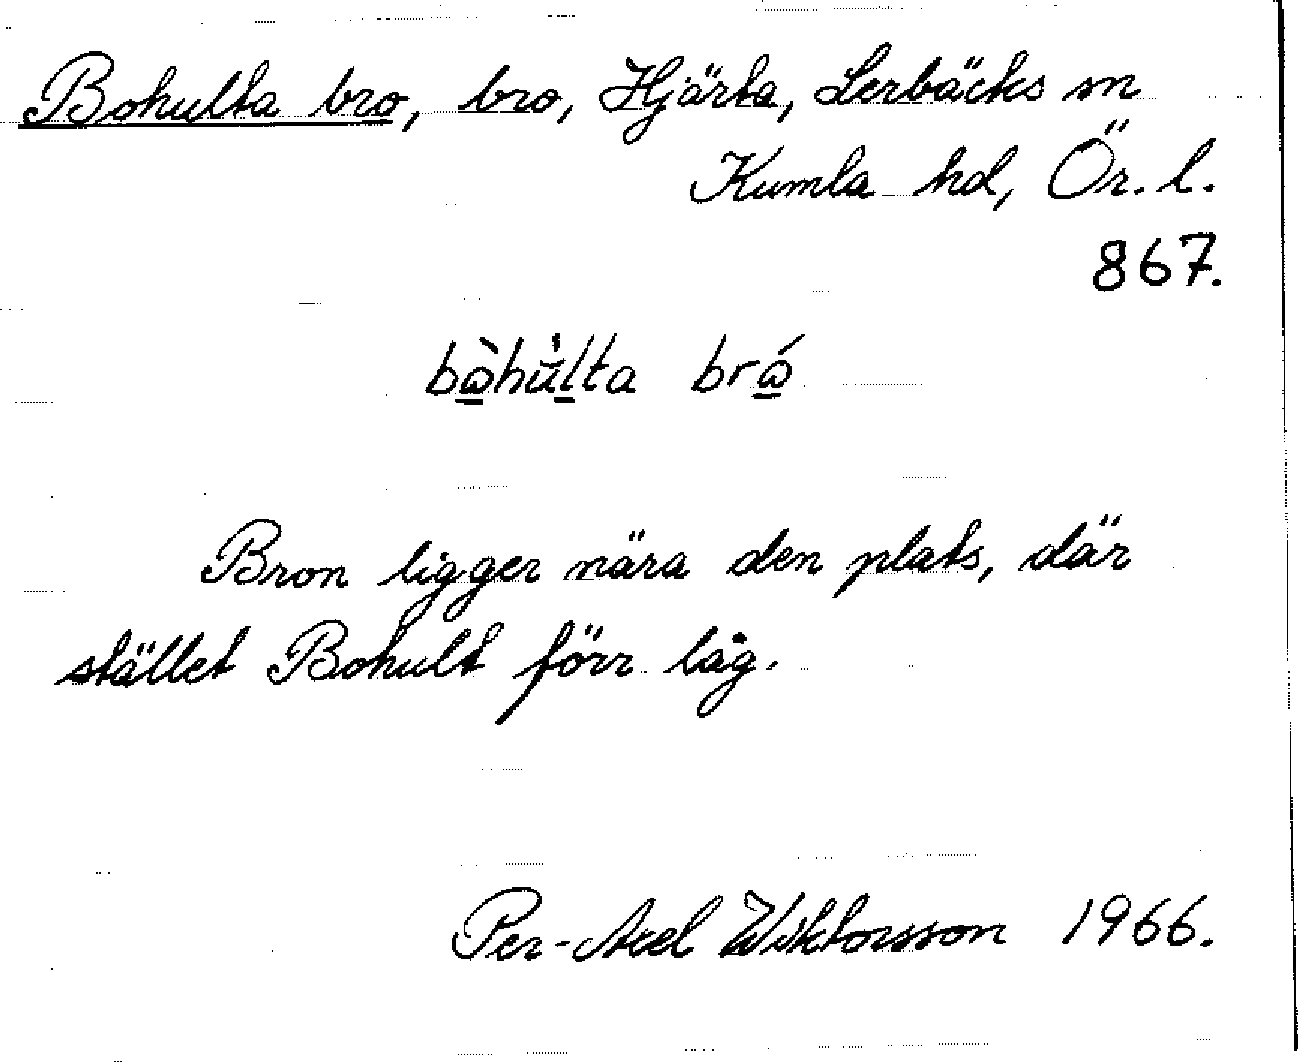 Bohulta bro, bro, Hjärta, Lerbäcks sn
Kumla hd, Ör. l.
867.
bòhu̇̀lta bró
Bron ligger nära den plats, där
stället Bohult förr låg.
Per-Axel Wiktorsson 1966.